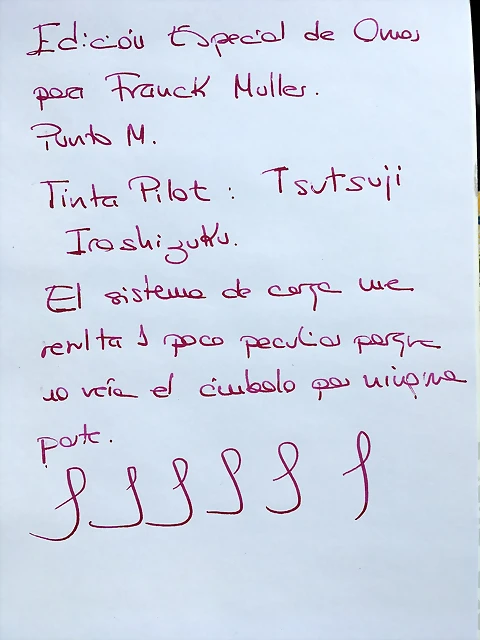 Edición Especial de Omas
para Franck Muller.
Punto M.
Tinta Pilot : Tsutsuji
Iroshizuku.
El sistema de carga me
resulta 1 poco peculiar porque
no veía el émbolo por ninguna
parte.